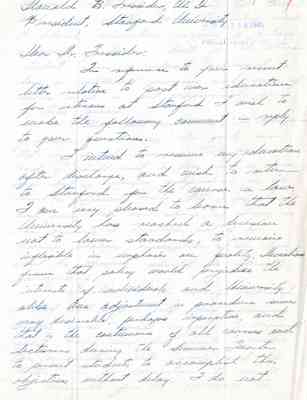 Donald B. Tresidder, M.D.
President, Stanford University
Dear Dr. Tresidder:
In response to your recent
letter relative to post war education
for veterans at Stanford I wish to
make the following comment in reply
to your questions.
I intend to resume my education
after discharge, and wish to return
to Stanford for the course in law.
I am very pleased to learn that the
University has reached a decision
not to lower standards, to remain
inflexible in emphasis on quality.
from that policy would prejudice the
interests of individuals and University
alike. One adjustment in procedure
may desirable, perhaps imperative, and
that is the continuing of all courses and
sections during the Summer Quarter
to permit students to accomplish their
objectives without delay. I do not